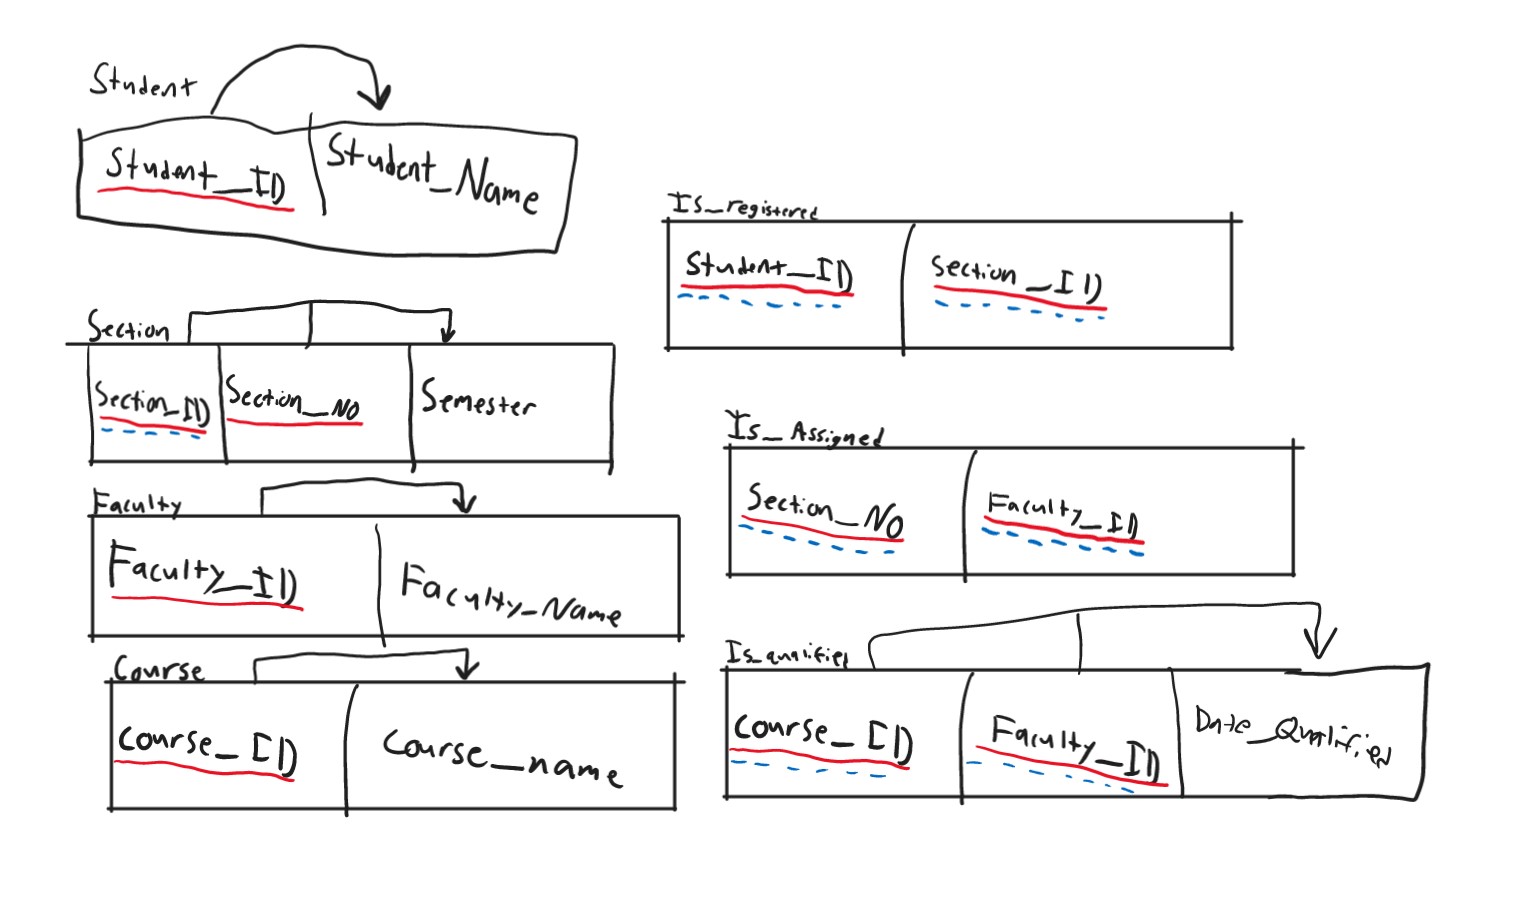 Student
Student_ID Student_Name
Section
Section_ID Section_NO Semester
Faculty
Faculty_ID Faculty_Name
Course
Course_ID Course_name
Is_registered
Student_ID Section_ID
Is_Assigned
Section_NO Faculty_ID
Is_qualified
Course_ID Faculty_ID Date_Qualified